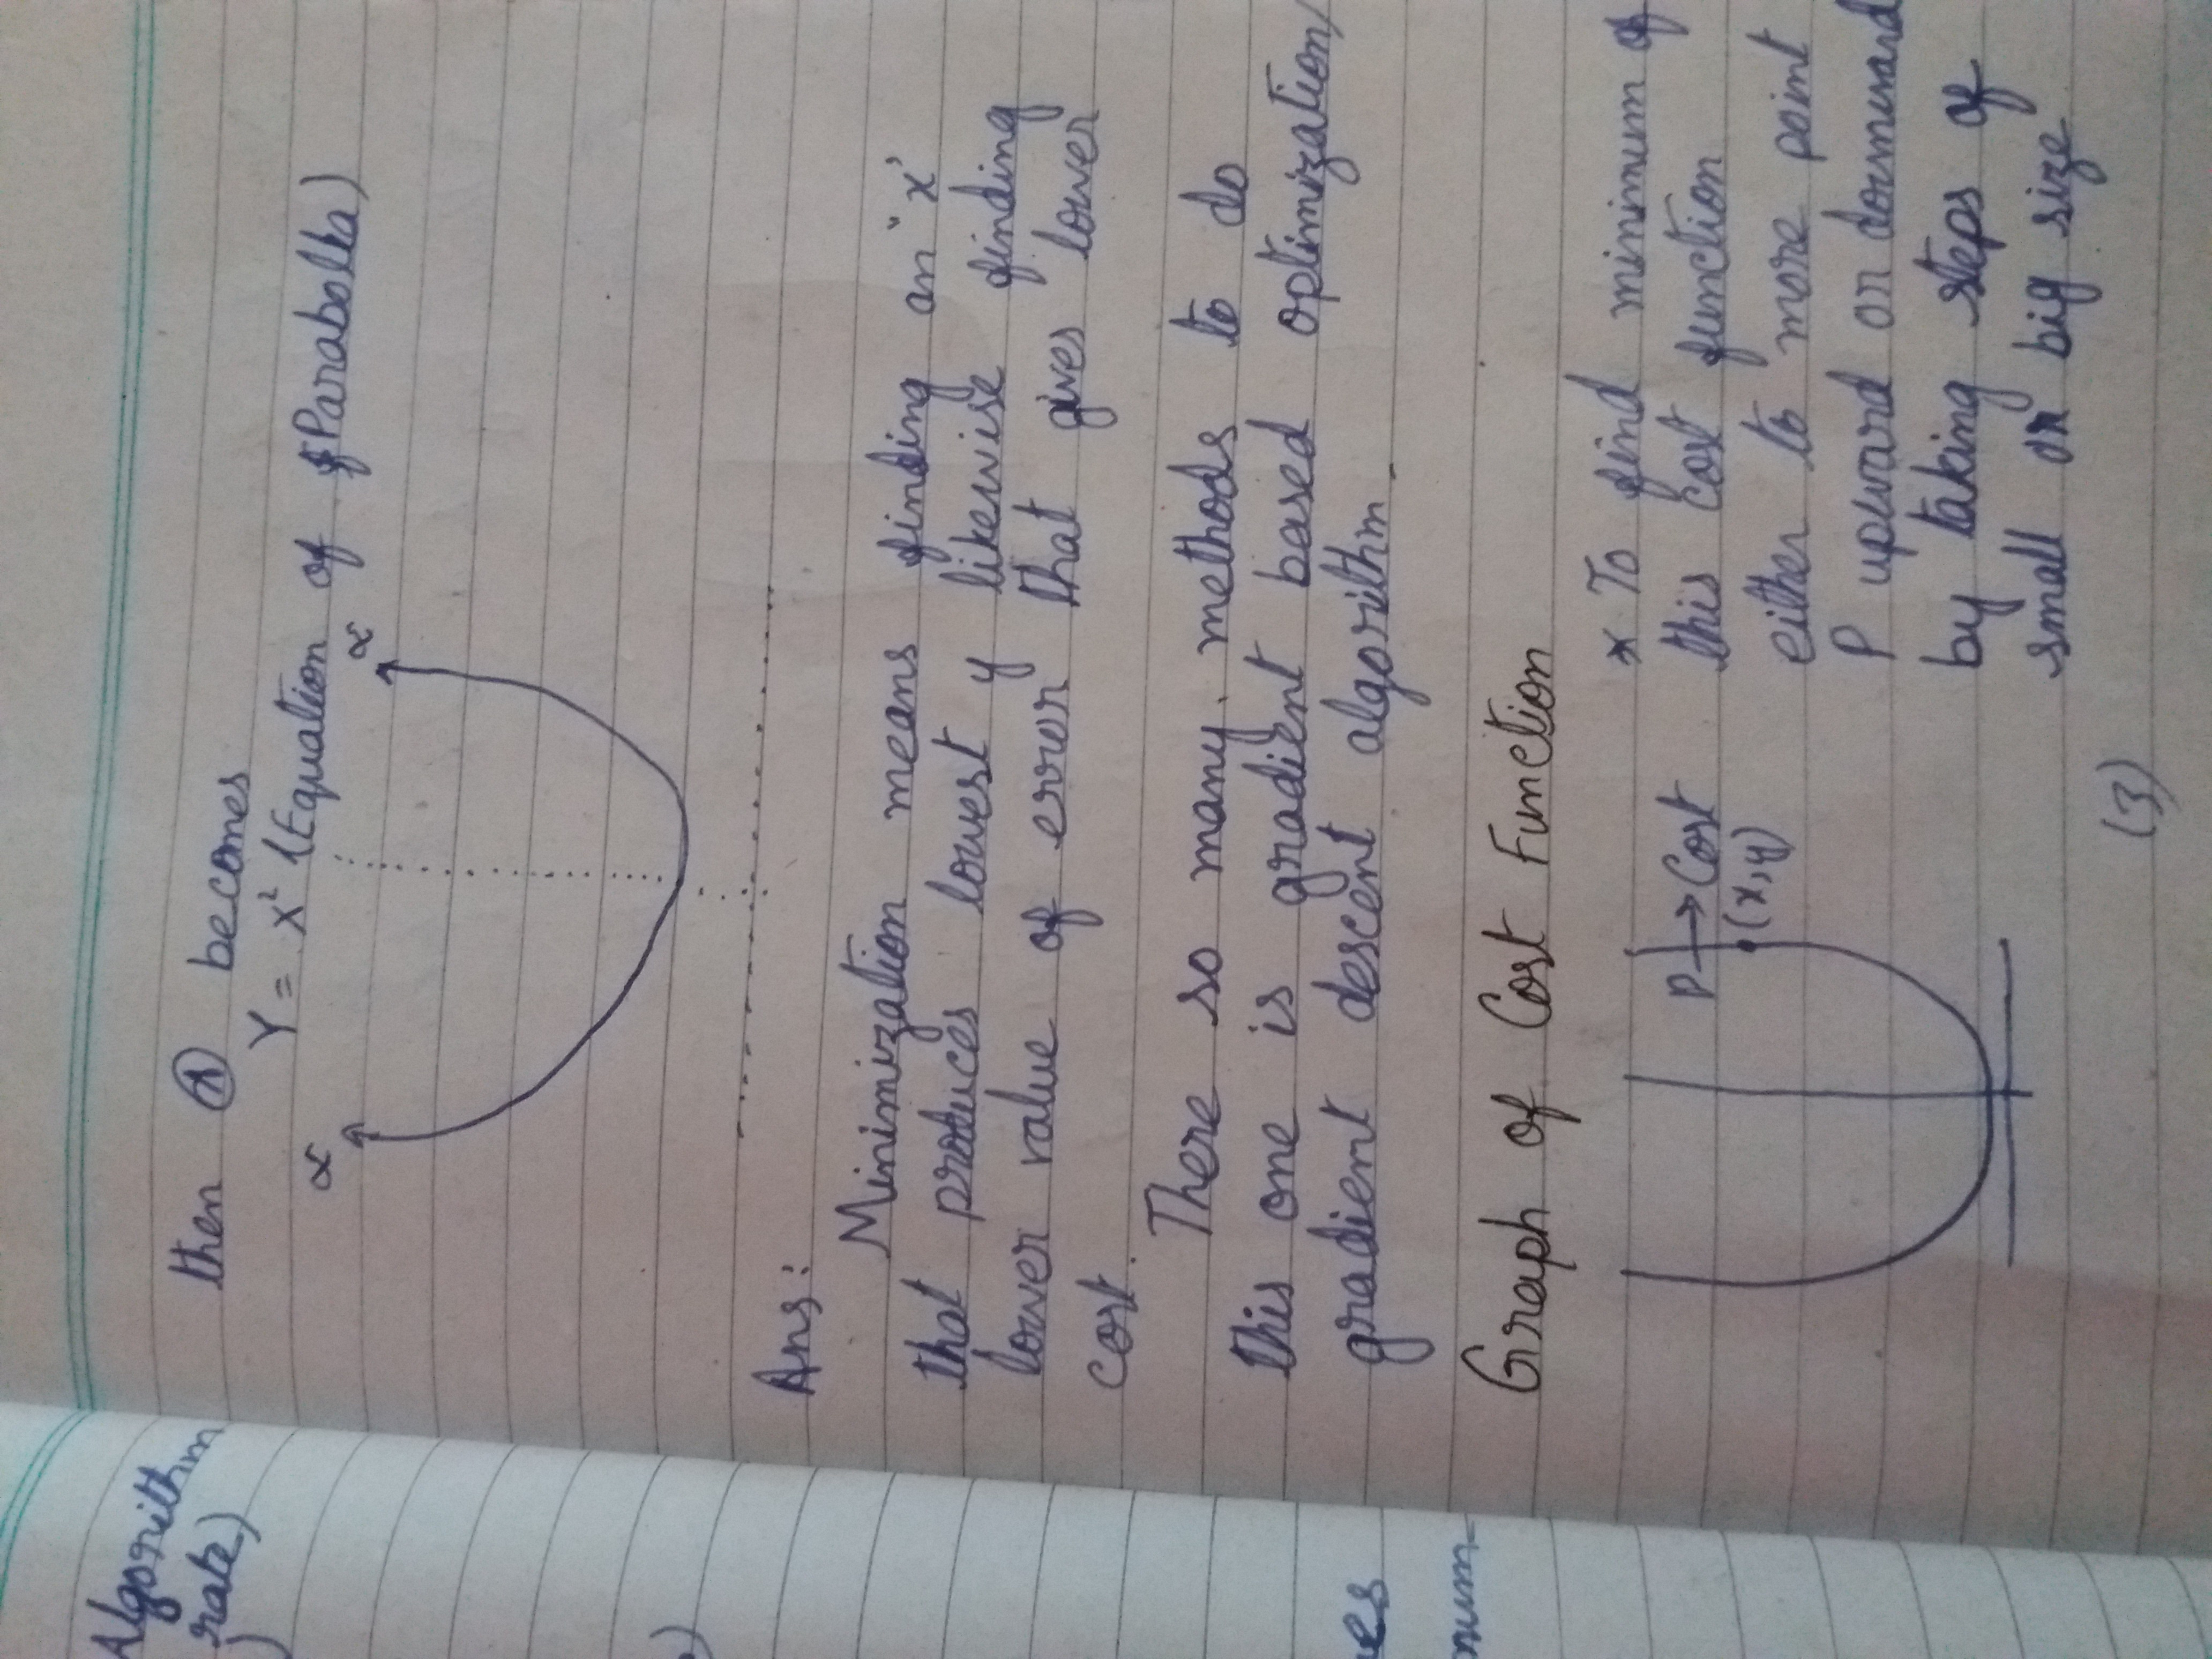 Algorithm
rate)
)
then Ⓐ becomes
Y = X² (Equation of Parabolla)
∝ ∝
Ans:
Minimization means finding an 'x'
that produces lowest y likewise finding
lower value of error that gives lower
cost.
There so many. methods to do
this one is gradient based optimization/
gradient descent algorithm.
es
num-
Graph of Cost Function
P → Cost
(x,y)
* To find minimum of
this cost function
either to more point
P upward or downward
by taking steps of
small or big size
(3)